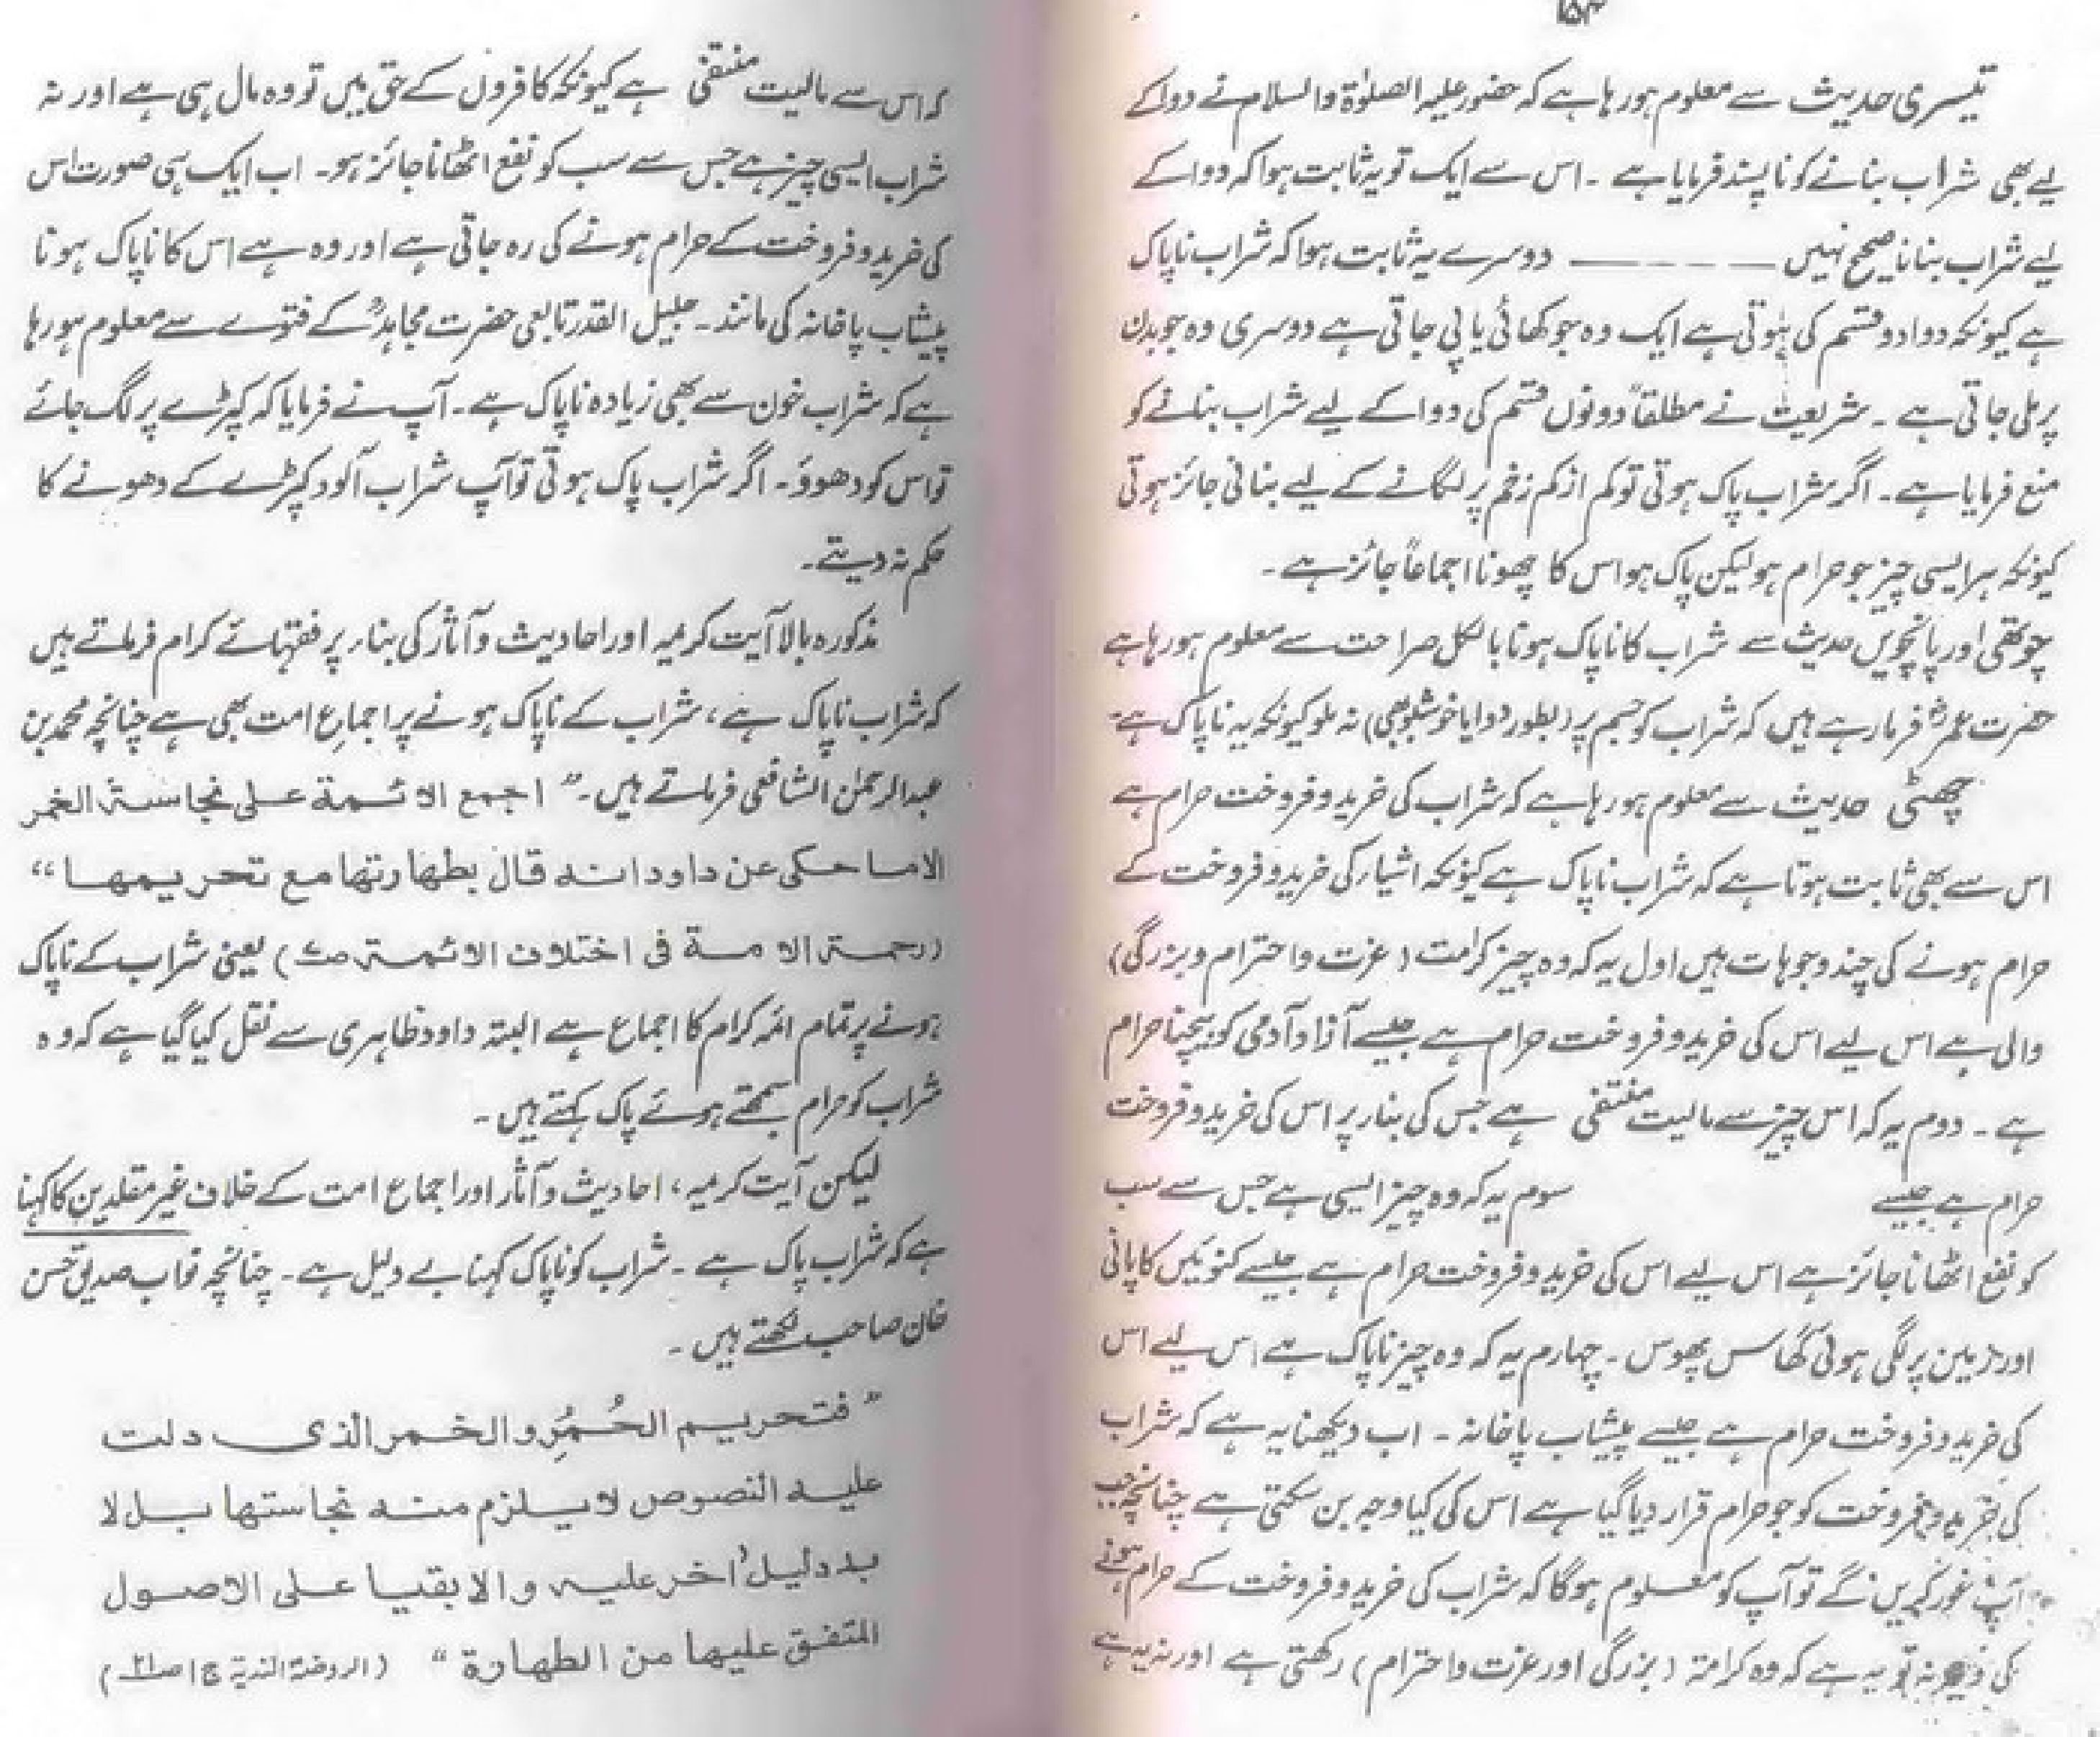 ۱۵۴
تیسری حدیث سے معلوم ہورہا ہے کہ حضور علیہ الصلوٰۃ والسلام نے دوا کے
لیے بھی شراب بنانے کو ناپسند فرمایا ہے ۔ اس سے ایک تو یہ ثابت ہوا کہ دوا کے
لیے شراب بنانا صحیح نہیں ــــــــ دوسرے یہ ثابت ہوا کہ شراب ناپاک
ہے کیونکہ دوا دو قسم کی ہوتی ہے ایک وہ جو کھائی یا پی جاتی ہے دوسری وہ جو بدن
پر ملی جاتی ہے ۔ شریعت نے مطلقاً دونوں قسم کی دوا کے لیے شراب بنانے کو
منع فرمایا ہے ۔ اگر شراب پاک ہوتی تو کم از کم زخم پر لگانے کے لیے بنانی جائز ہوتی
کیونکہ ہر ایسی چیز جو حرام ہو لیکن پاک ہو اس کا چھونا اجماعاً جائز ہے ۔
چوتھی اور پانچویں حدیث سے شراب کا ناپاک ہونا بالکل صراحت سے معلوم ہورہا ہے
حضرت عمرؓ فرما رہے ہیں کہ شراب کو جسم پر (بطور دوا یا خوشبو بھی) نہ ملو کیونکہ یہ ناپاک ہے ۔
چھٹی حدیث سے معلوم ہورہا ہے کہ شراب کی خرید و فروخت حرام ہے
اس سے بھی ثابت ہوتا ہے کہ شراب ناپاک ہے کیونکہ اشیار کی خرید و فروخت کے
حرام ہونے کی چند وجوہات ہیں اول یہ کہ وہ چیز کرامت (عزت و احترام و بزرگی)
والی ہے اس لیے اس کی خرید و فروخت حرام ہے جیسے آزاد آدمی کو بیچنا حرام
ہے ۔ دوم یہ کہ اس چیز سے مالیت منتفی ہے جس کی بنار پر اس کی خرید و فروخت
حرام ہے جیسے سوم یہ کہ وہ چیز ایسی ہے جس سے سب
کو نفع اٹھانا جائز ہے اس لیے اس کی خرید و فروخت حرام ہے جیسے کنوئیں کا پانی
اور زمین پر لگی ہوئی گھاس پھوس ۔ چہارم یہ کہ وہ چیز ناپاک ہے اس لیے اس
کی خرید و فروخت حرام ہے جیسے پیشاب پاخانہ ۔ اب دیکھنا یہ ہے کہ شراب
کی خرید و فروخت کو جو حرام قرار دیا گیا ہے اس کی کیا وجہ بن سکتی ہے چنانچہ جب
آپ غور کریں گے تو آپ کو معلوم ہوگا کہ شراب کی خرید و فروخت کے حرام ہونے
کی وجہ نہ تو یہ ہے کہ وہ کرامۃ (بزرگی اور عزت و احترام) رکھتی ہے اور نہ یہ ہے
کہ اس سے مالیت منتفی ہے کیونکہ کافروں کے حق میں تو وہ مال ہی ہے اور نہ
شراب ایسی چیز ہے جس سے سب کو نفع اٹھانا جائز ہو ۔ اب ایک ہی صورت اس
کی خرید و فروخت کے حرام ہونے کی رہ جاتی ہے اور وہ ہے اس کا ناپاک ہونا
پیشاب پاخانہ کی مانند ۔ جلیل القدر تابعی حضرت مجاہدؒ کے فتوے سے معلوم ہورہا
ہے کہ شراب خون سے بھی زیادہ ناپاک ہے ۔ آپ نے فرمایا کہ کپڑے پر لگ جائے
تو اس کو دھوؤ ۔ اگر شراب پاک ہوتی تو آپ شراب آلود کپڑے کے دھونے کا
حکم نہ دیتے ۔
مذکورہ بالا آیت کریمہ اور احادیث و آثار کی بنار پر فقہائے کرام فرماتے ہیں
کہ شراب ناپاک ہے ، شراب کے ناپاک ہونے پر اجماعِ امت بھی ہے چنانچہ محمد بن
عبدالرحمٰن الشافعی فرماتے ہیں ۔ " اجمع الائمة على نجاسة الخمر
الا ما حکی عن داود انه قال بطهارتها مع تحریمها "
(رحمة الامة فی اختلاف الائمة ص) یعنی شراب کے ناپاک
ہونے پر تمام ائمہ کرام کا اجماع ہے البتہ داود ظاہری سے نقل کیا گیا ہے کہ وہ
شراب کو حرام سمجھتے ہوئے پاک کہتے ہیں ۔
لیکن آیت کریمہ ، احادیث و آثار اور اجماع امت کے خلاف غیر مقلدین کا کہنا
ہے کہ شراب پاک ہے ۔ شراب کو ناپاک کہنا بے دلیل ہے ۔ چنانچہ نواب صدیق حسن
خان صاحب لکھتے ہیں ۔
" فتحریم الحُمُرِ والخمر الذی دلت
علیه النصوص لا یلزم منه نجاستها بل لا
بد دلیل اخر علیه والا بقیا على الاصول
المتفق علیها من الطهارة " (الروضۃ الندیۃ ج۱ ص۲۱)